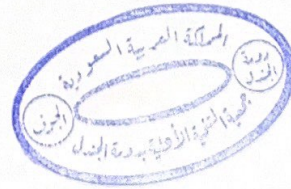 المملكة العربية السعودية
دومة الجندل
الجوف
جمعية التنمية الأهلية بدومة الجندل